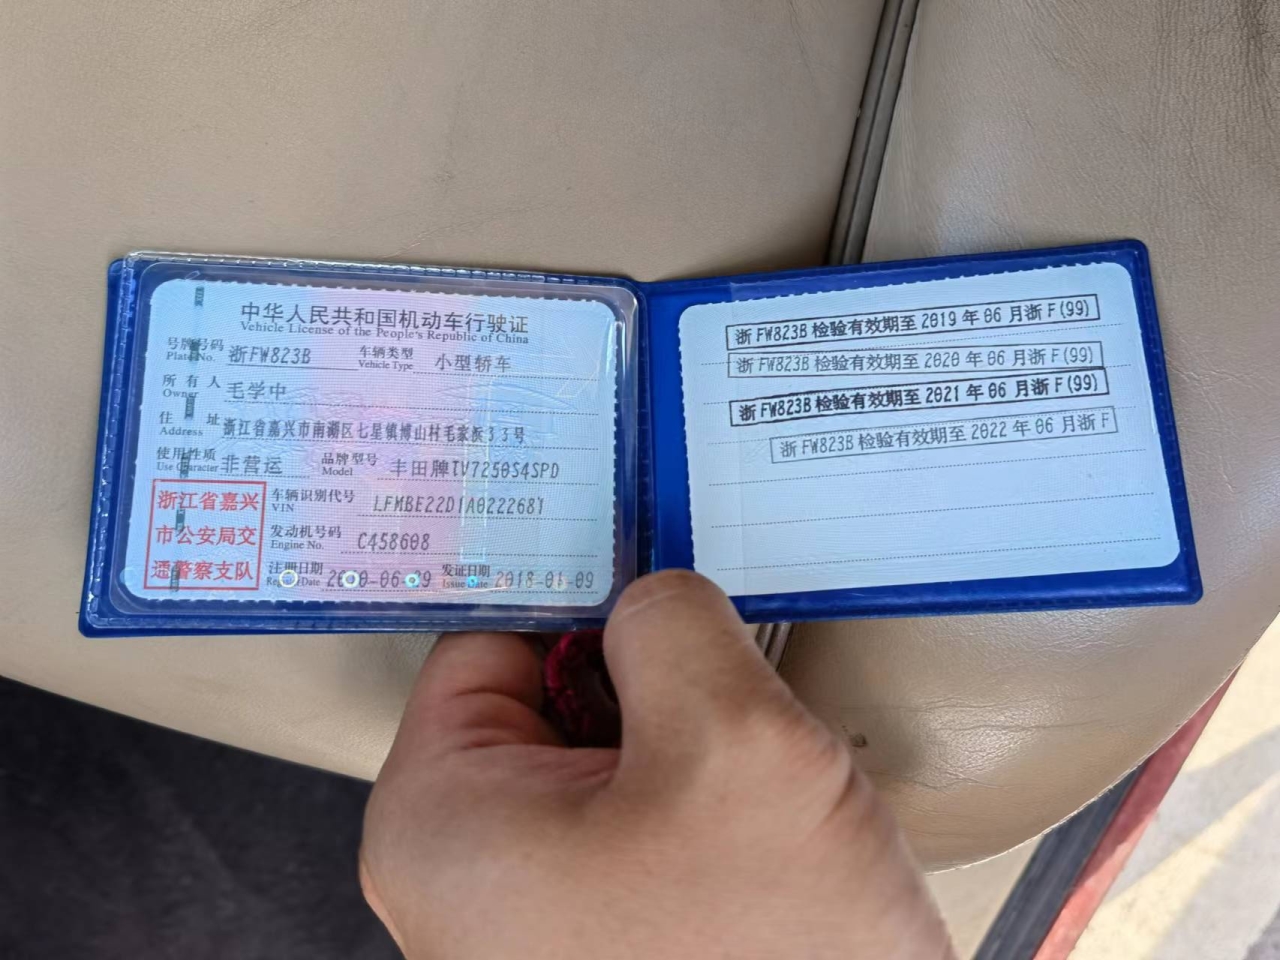 中华人民共和国机动车行驶证
Vehicle License of the People's Republic of China
号牌号码 浙FW823B 车辆类型 小型轿车
Plate No. Vehicle Type
所有人 毛学中
Owner
住址 浙江省嘉兴市南湖区七星镇博山村毛家浜33号
Address
使用性质 非营运 品牌型号 丰田牌TV7250S4SPD
Use Character Model
浙江省嘉兴
市公安局交
通警察支队
车辆识别代号 LFMBE22D1A0222681
VIN
发动机号码 C458608
Engine No.
注册日期 2010-06-09 发证日期 2018-01-09
Register Date Issue Date
浙FW823B 检验有效期至 2019 年 06 月浙F(99)
浙FW823B 检验有效期至 2020 年 06 月浙F(99)
浙FW823B 检验有效期至 2021 年 06 月浙F(99)
浙FW823B 检验有效期至 2022 年 06 月浙F